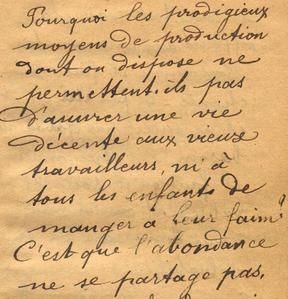 Pourquoi les prodigieux
moyens de production
dont on dispose ne
permettent-ils pas
d'assurer une vie
décente aux vieux
travailleurs, ni à
tous les enfants de
manger à leur faim?
C'est que l'abondance
ne se partage pas,